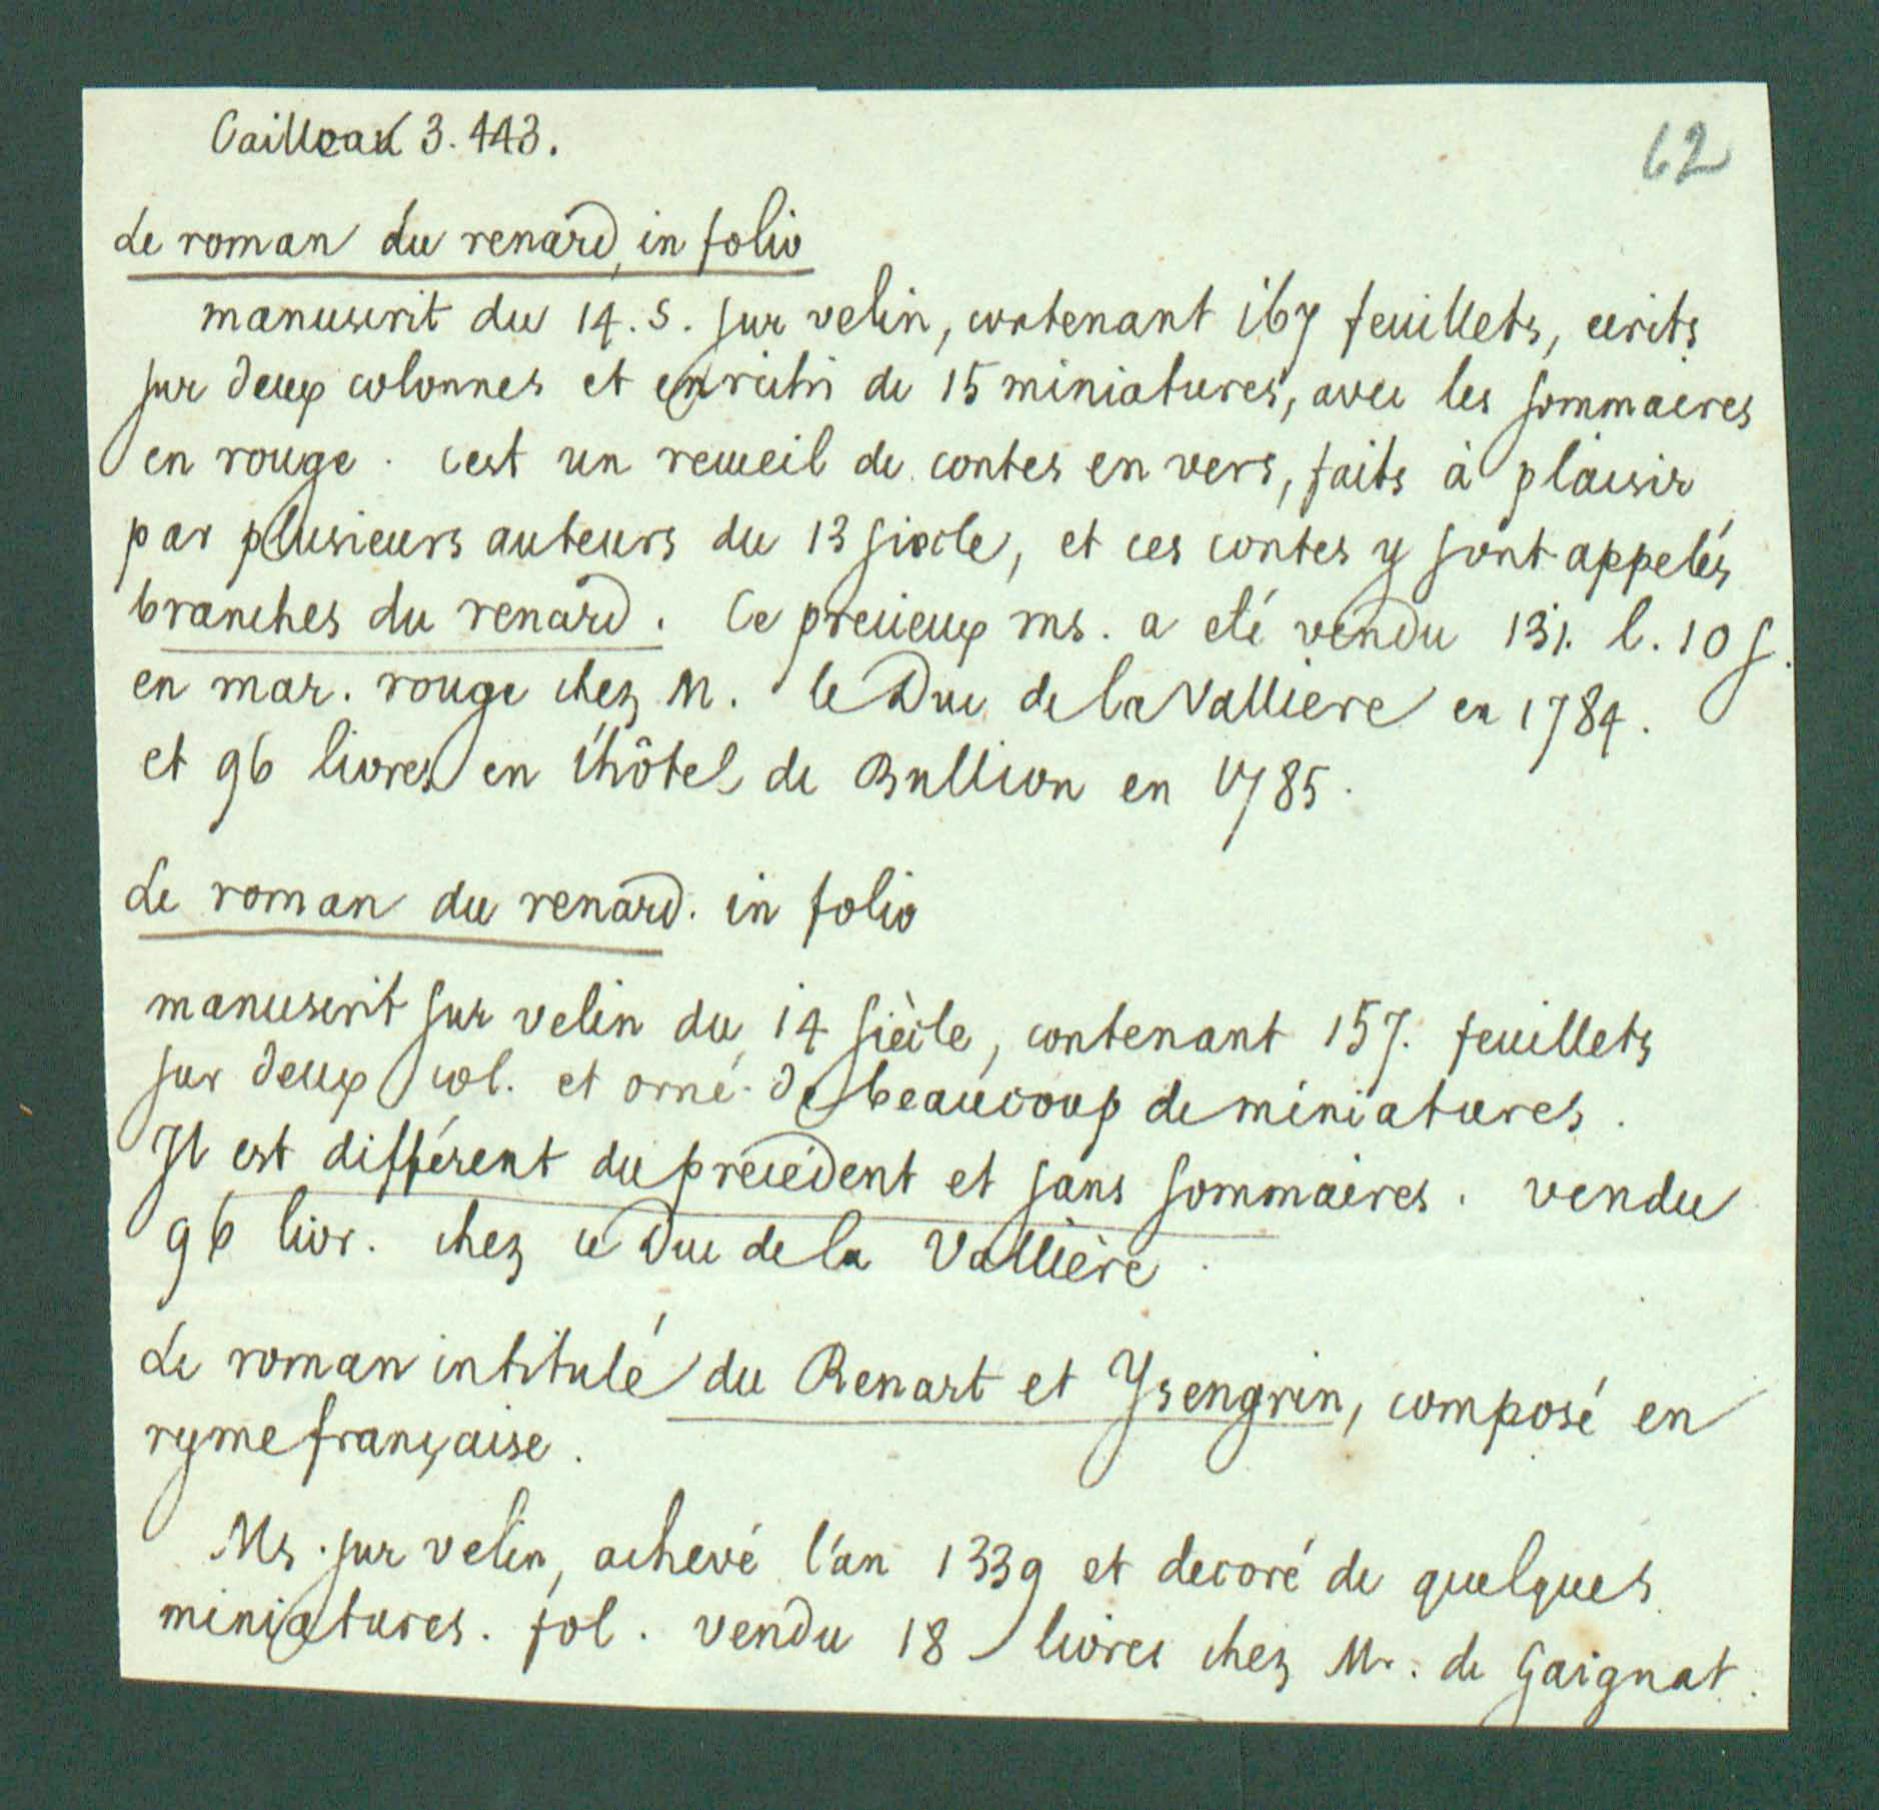 Cailleau 3. 443.
62
Le roman du renard, in folio
manuscrit du 14. s. sur velin, contenant 167 feuillets, ecrits
sur deux colonnes et enrichi de 15 miniatures, avec les sommaires
en rouge. cest un recueil de contes en vers, faits à plaisir
par plusieurs auteurs du 13 siecle, et ces contes y sont appelés
branches du renard. Ce precieux ms. a eté vendu 131. l. 10 s.
en mar. rouge chez M. le Duc de la Valliere en 1784.
et 96 livres en l'hôtel de Bullion en 1785.
Le roman du renard. in folio
manuscrit sur velin du 14 siècle, contenant 157. feuillets
sur deux col. et orné de beaucoup de miniatures.
Il est différent du précédent et sans sommaires. vendu
96 livr. chez le Duc de la Vallière.
Le roman intitulé du Renart et Ysengrin, composé en
ryme française.
Ms. sur velin, achevé l'an 1339 et decoré de quelques
miniatures. fol. vendu 18 livres chez Mr. de Gaignat.